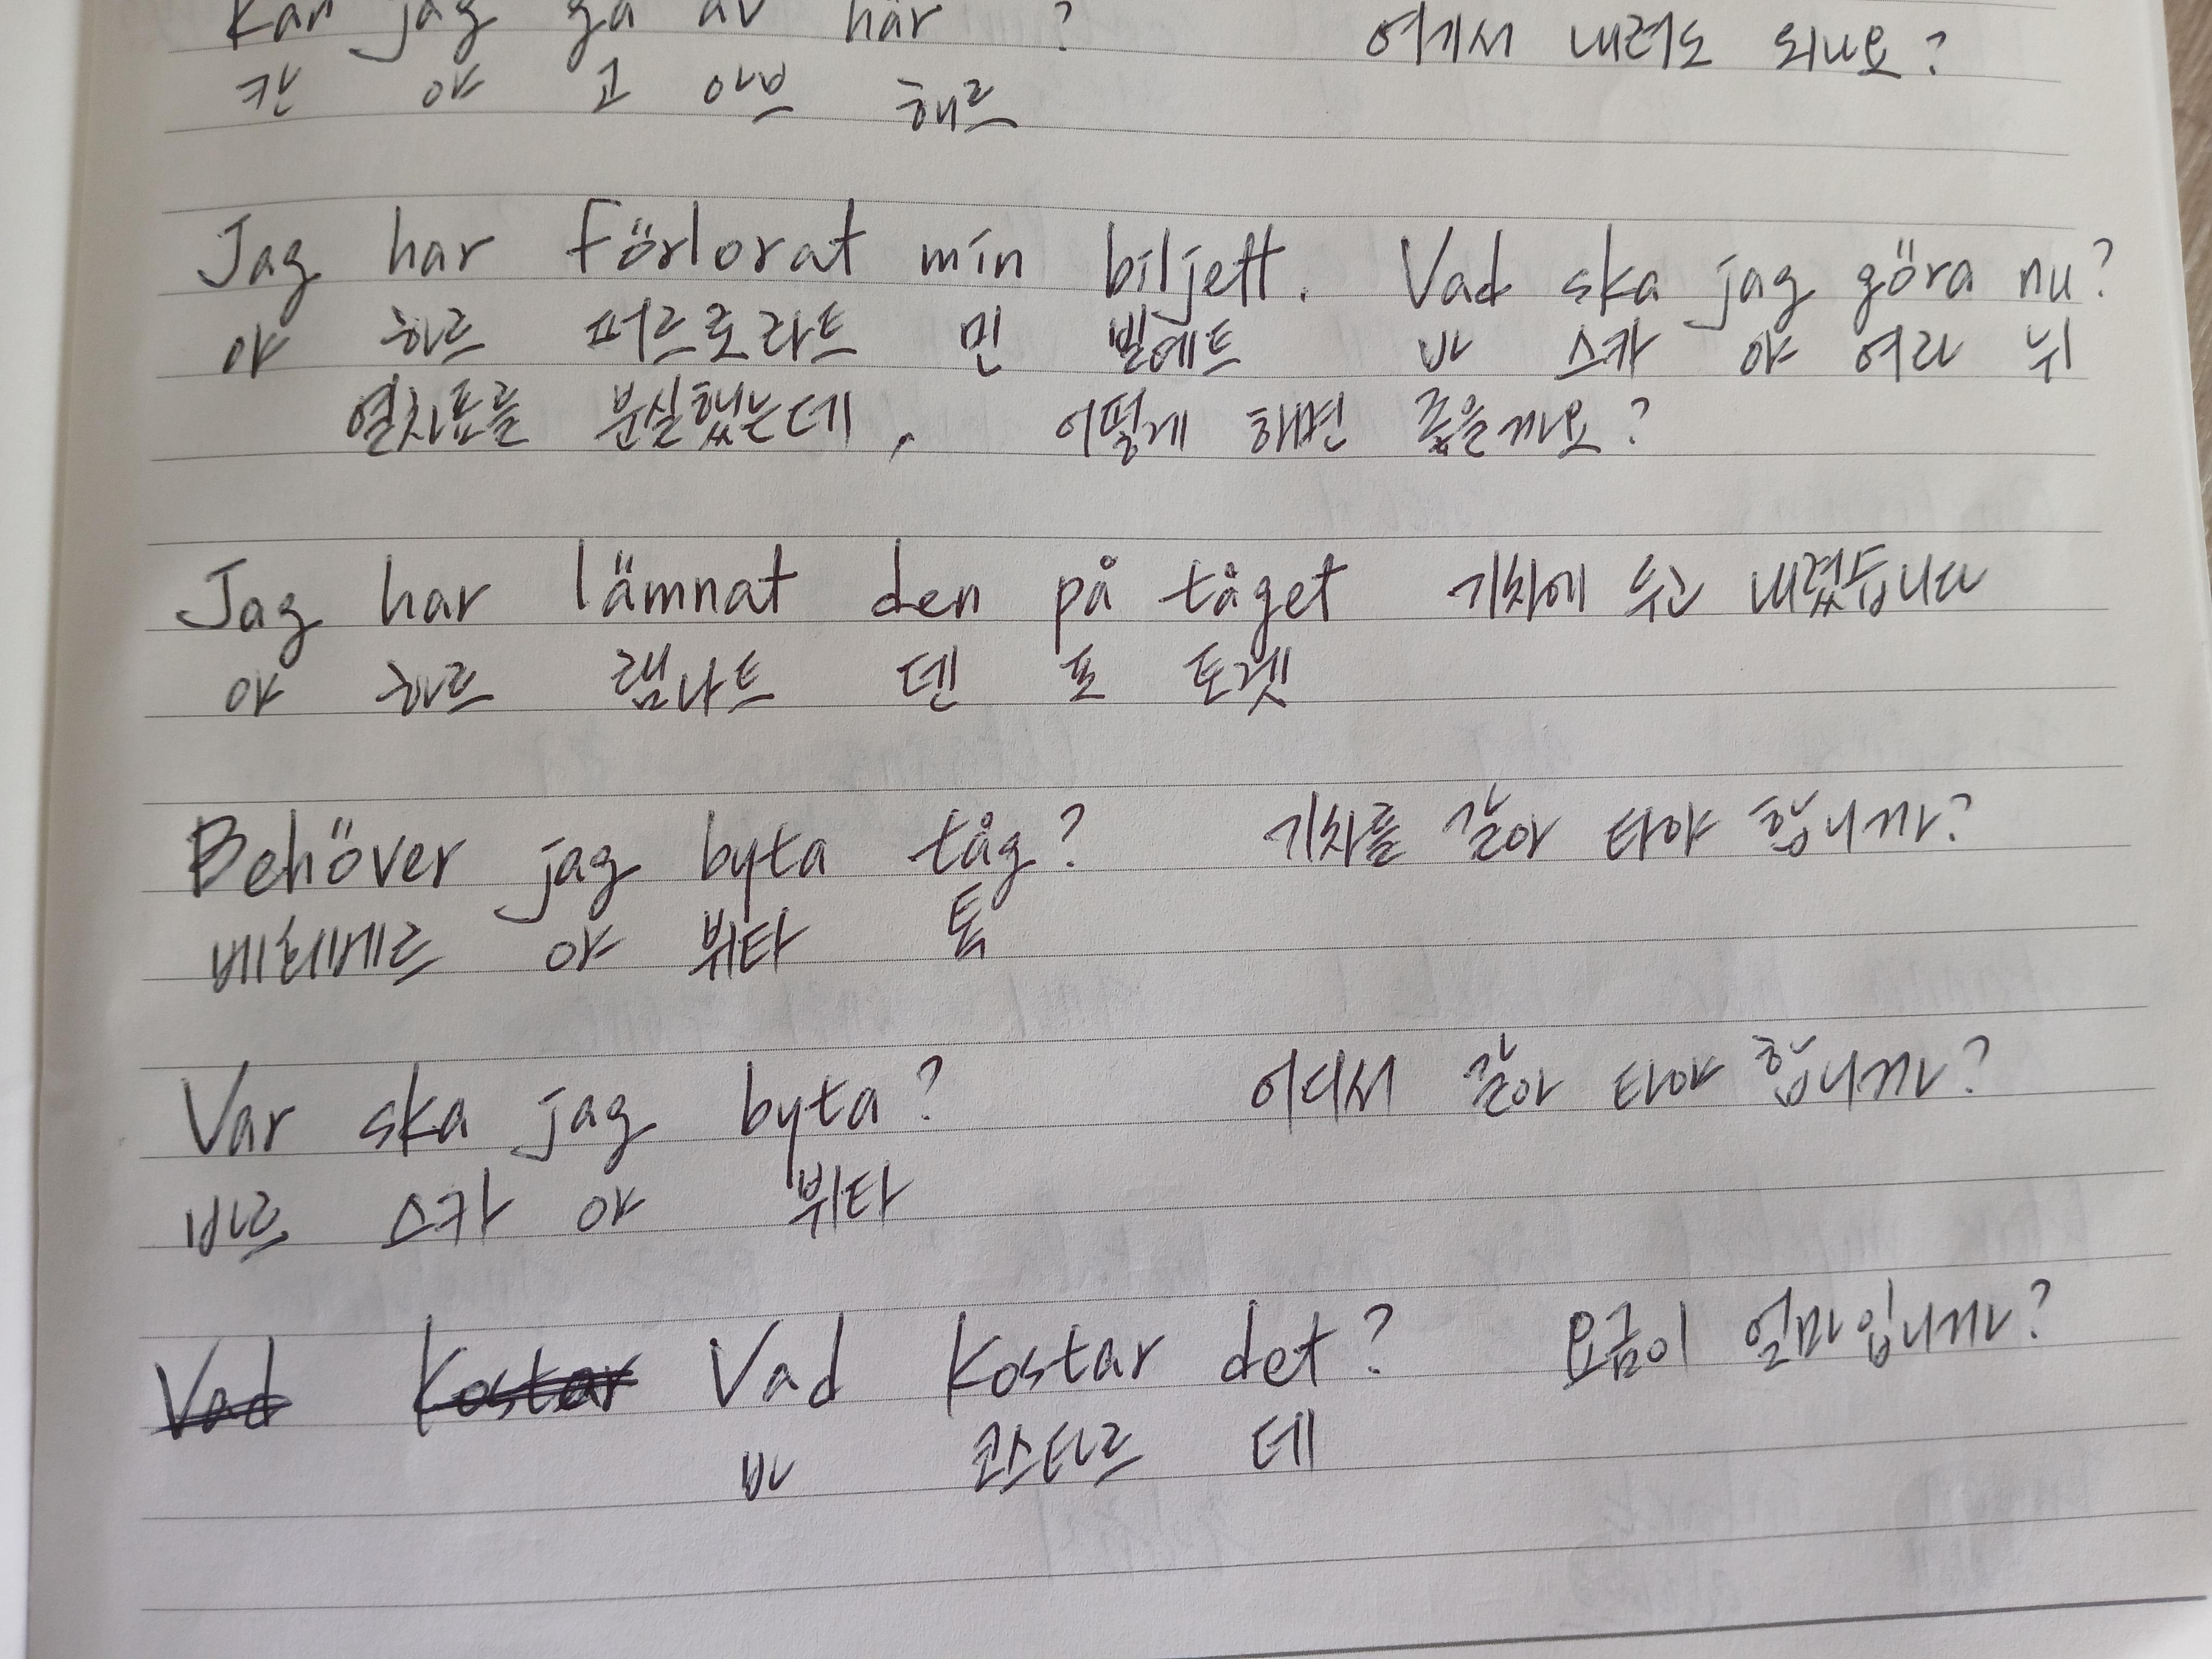 Kan jag gå av här ? 여기서 내려도 되나요?
칸 야 고 아브 해르
Jag har Förlorat min biljett. Vad ska jag göra nu?
야 하르 퍼르로라트 민 빌예트 바 스카 야 여라 뉘
열차표를 분실했는데, 어떻게 해면 좋을까요?
Jag har lämnat den på tåget 기차에 두고 내렸습니다
야 하르 램나트 덴 포 토겟
Behöver jag byta tåg? 기차를 갈아 타야 합니까?
베회베르 야 뷔타 톡
Var ska jag byta? 어디서 갈아 타야 합니까?
바르 스카 야 뷔타
Vad Kostar Vad Kostar det? 요금이 얼마입니까?
바 코스타르 데